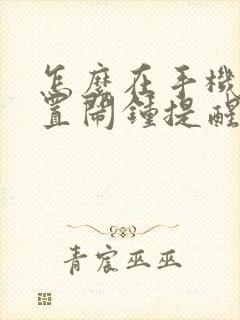 怎麼在手機
置鬧鍾提醒
青宸巫巫